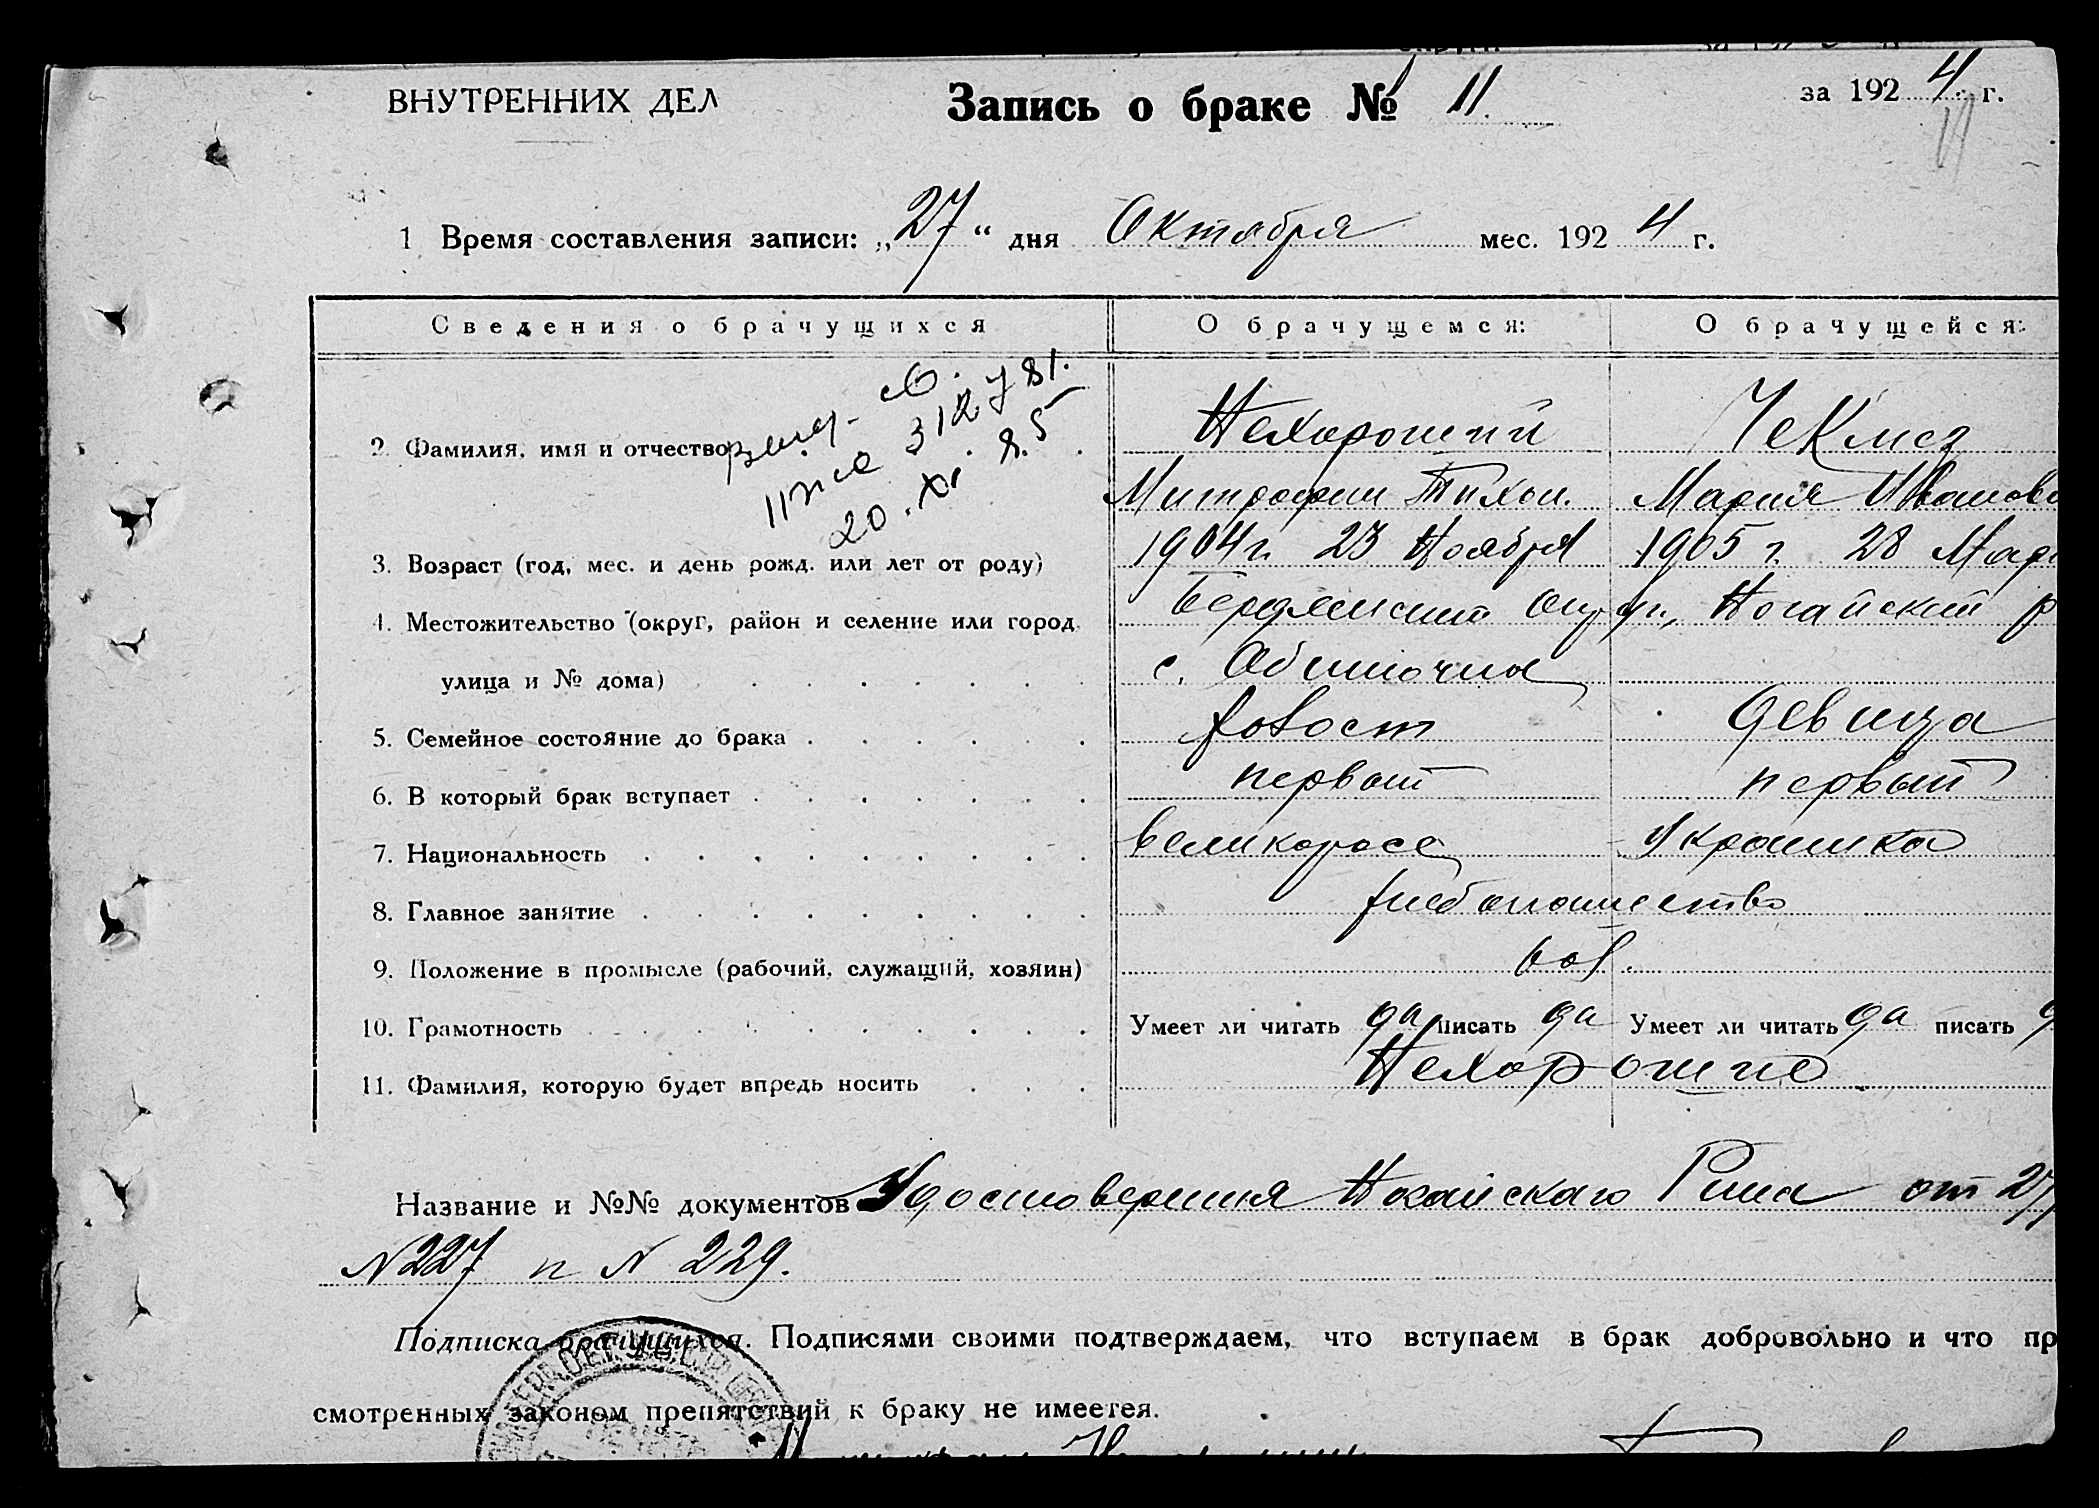 ВНУТРЕННИХ ДЕЛ
Запись о браке № 11.
за 1924 г.
1 Время составления записи: „27“ дня Октября мес. 1924 г.
Сведения о брачущихся
О брачущемся:
О брачущейся:
2. Фамилия, имя и отчество
Нехороший
Чекмез
Митрофан Тихон.
Мария Иванов
20.XI.85
3. Возраст (год, мес. и день рожд. или лет от роду)
1904 г. 23 Ноября
1905 г. 28 Мар
4. Местожительство (округ, район и селение или город,
Бердянский округ, Ногайский р
улица и № дома)
с. Обиточна
5. Семейное состояние до брака
холост
девица
6. В который брак вступает
первый
первый
7. Национальность
великоросс
Украинка
8. Главное занятие
хлебопашество
9. Положение в промысле (рабочий, служащий, хозяин)
хоз.
10. Грамотность
Умеет ли читать да писать да
Умеет ли читать да писать д
11. Фамилия, которую будет впредь носить
Нехорошие
Название и №№ документов Удостоверения Ногайского Рика от 27
N 227 и N 229.
Подписка брачущихся. Подписями своими подтверждаем, что вступаем в брак добровольно и что пр
смотренных законом препятствий к браку не имеется.